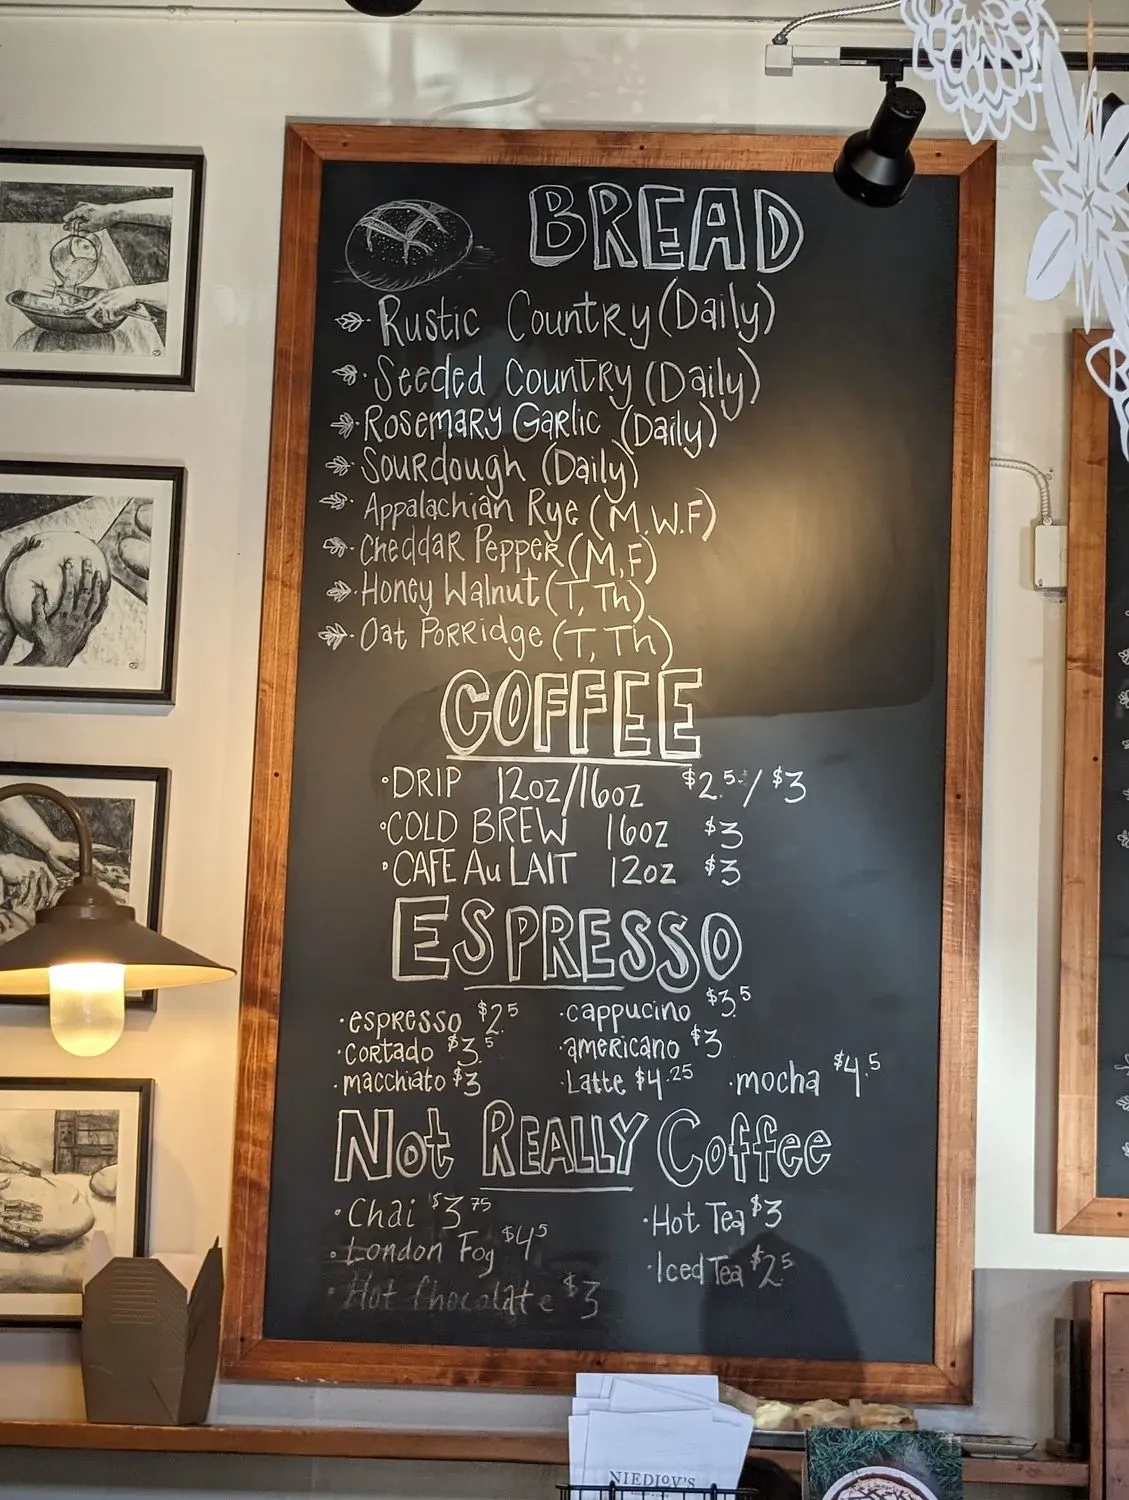 BREAD
Rustic Country (Daily)
Seeded Country (Daily)
Rosemary Garlic (Daily)
Sourdough (Daily)
Appalachian Rye (M.W.F)
Cheddar Pepper (M,F)
Honey Walnut (T, Th)
Oat Porridge (T, Th)
COFFEE
DRIP 12oz/16oz $2.5/$3
COLD BREW 16oz $3
CAFE Au LAIT 12oz $3
ESPRESSO
espresso $2.5 cappucino $3.5
cortado $3.5 americano $3
macchiato $3 Latte $4.25 mocha $4.5
Not REALLY Coffee
Chai $3.75 Hot Tea $3
London Fog $4.5
Iced Tea $2.5
Hot Chocolate $3
NIEDLOV'S